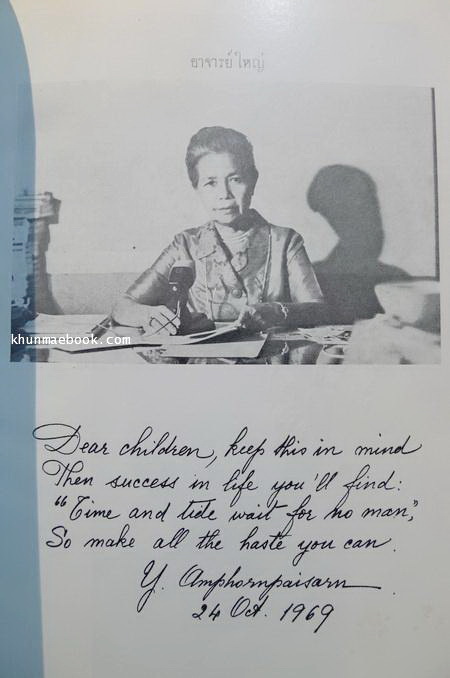 อาจารย์ใหญ่
khunmaebook.com
Dear children, keep this in mind
Then success in life you'll find:
"Time and tide wait for no man",
So make all the haste you can.
Y. Amphornpaisarn
24 Oct. 1969